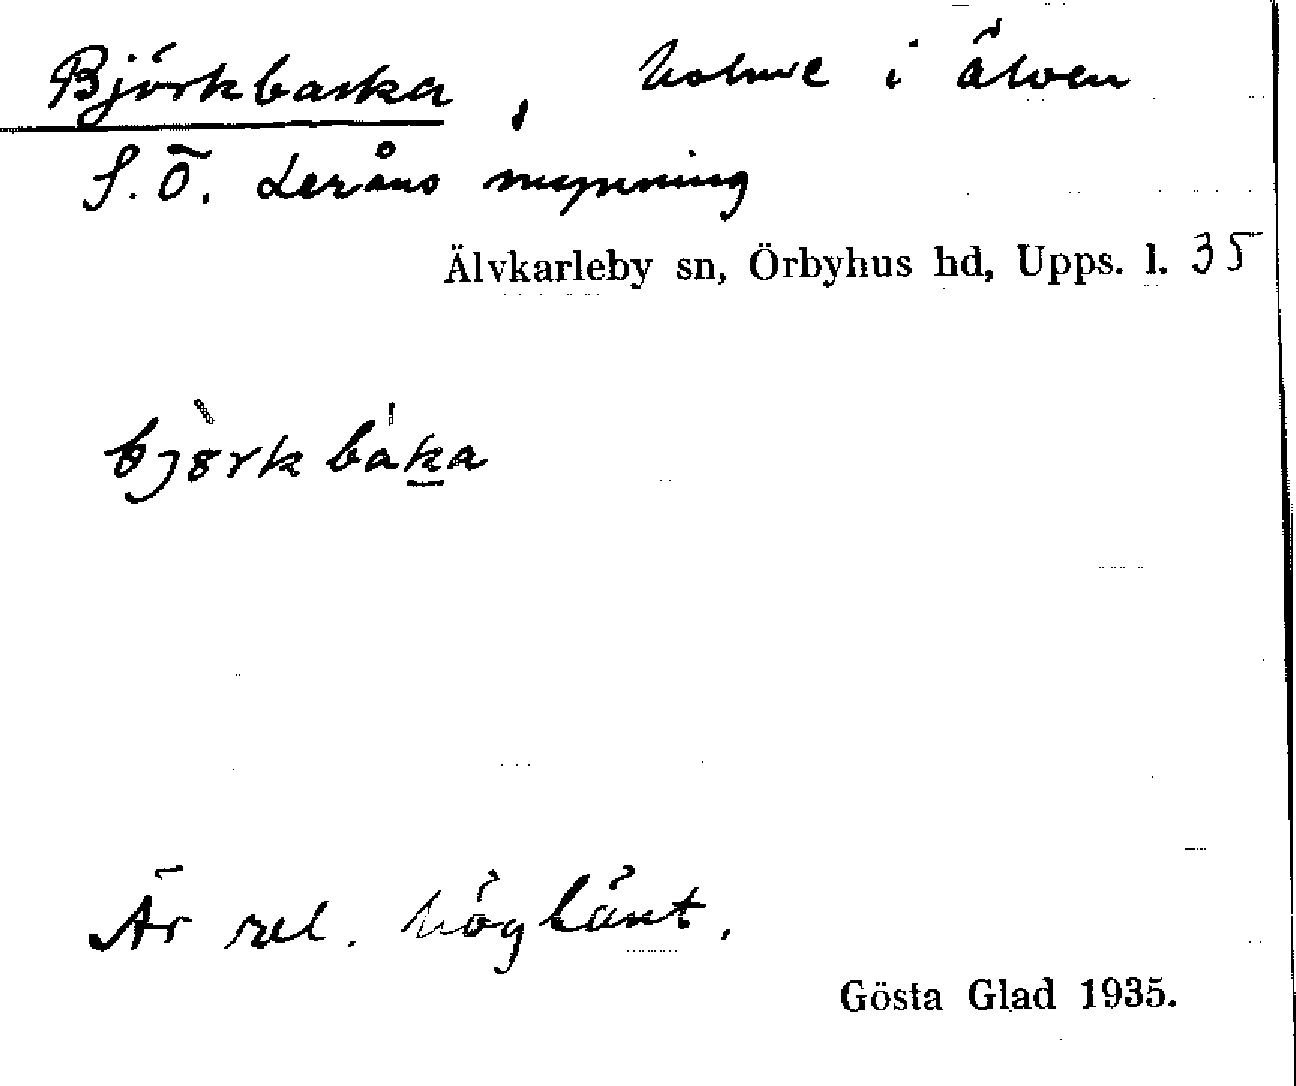 Björkbacka, holme i älven
S.Ö. Leråns mynning
Älvkarleby sn, Örbyhus hd, Upps. l. 35
bjòrkbáka
Är rel. höglänt.
Gösta Glad 1935.